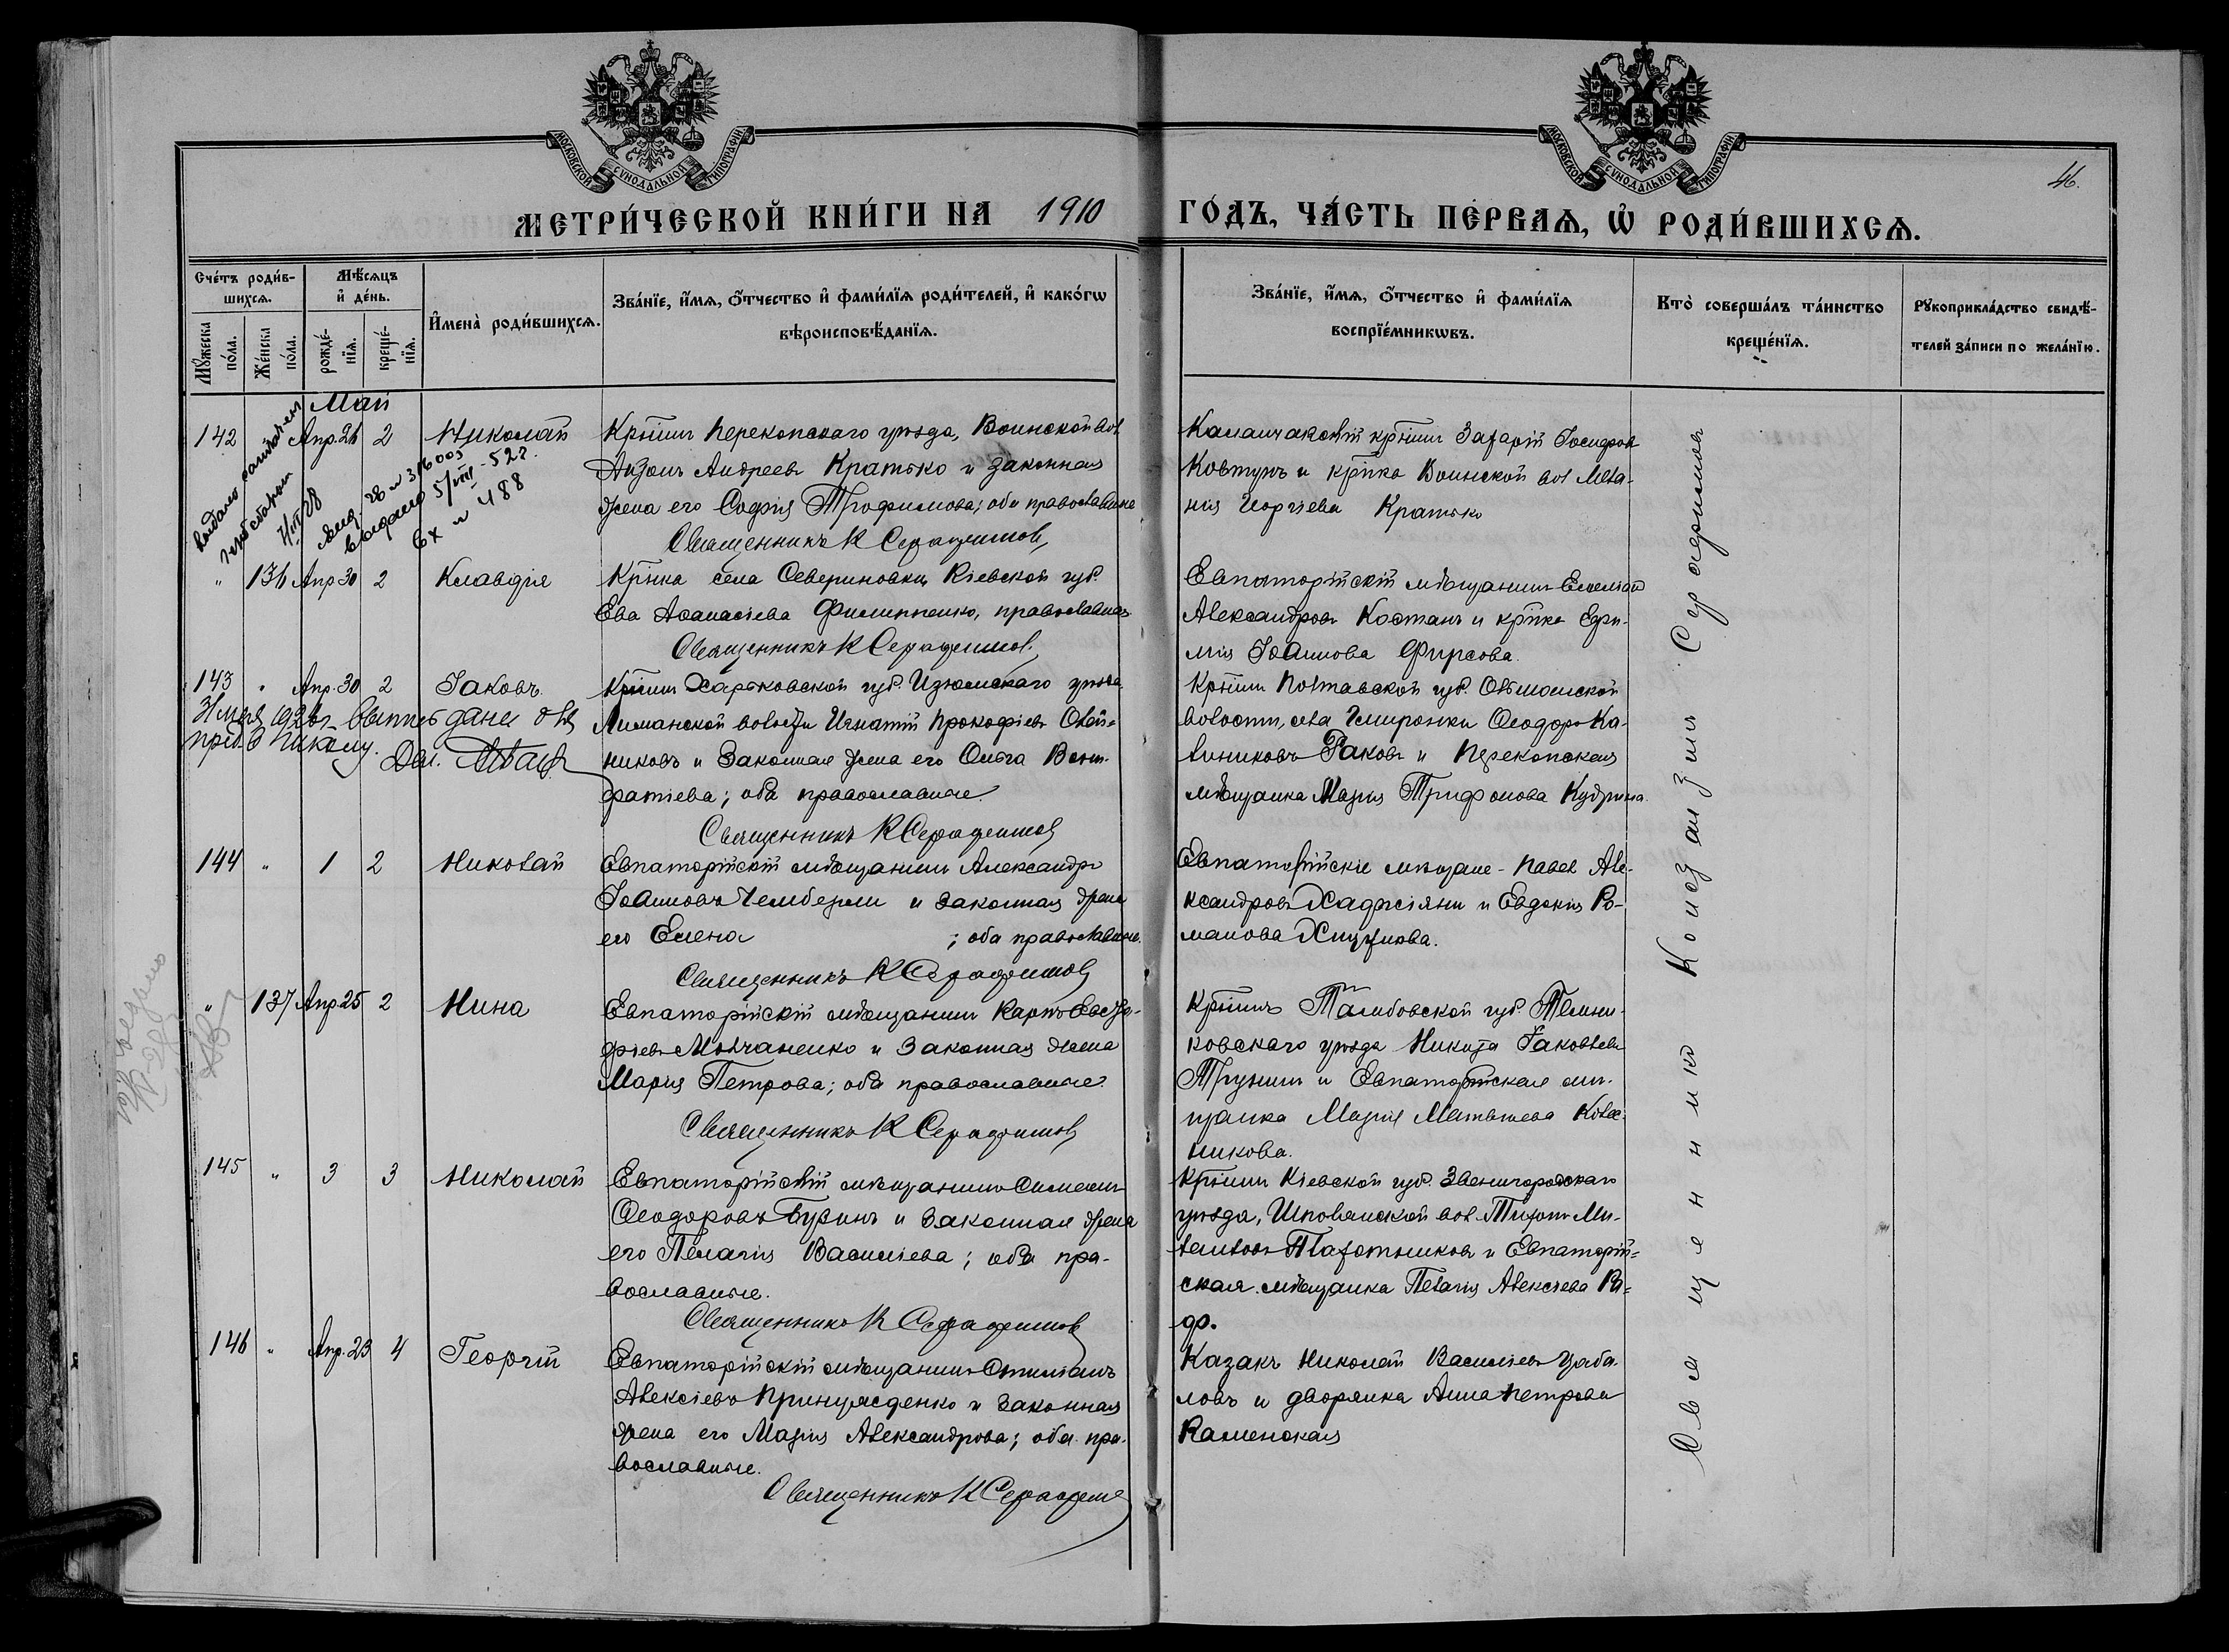 МОСКОВСКОЙ СѴНОДАЛЬНОЙ ТИПОГРАФІИ
МОСКОВСКОЙ СѴНОДАЛЬНОЙ ТИПОГРАФІИ
46.
МЕТРИ́ЧЕСКОЙ КНИ́ГИ НА̀ 1910 ГО́ДЪ, ЧА́СТЬ ПЕ́РВАѦ, Ѡ҆ РОДИ́ВШИХСѦ.
Сче́тъ роди́в-
шихсѧ.
Мꙋ́жеска по́ла.
Же́нска по́ла.
Мѣ́сѧцъ
и҆ де́нь.
рожде́-
нїѧ.
креще́-
нїѧ.
И҆мена̀ роди́вшихсѧ.
Зва́нїе, и҆́мѧ, ѻ҆́тчество и҆ фами́лїѧ роди́телей, и҆ како́гѡ
вѣроисповѣ́данїѧ.
Зва́нїе, и҆́мѧ, ѻ҆́тчество и҆ фами́лїѧ
воспрїе́мникѡвъ.
Кто̀ соверша́лъ та́инство
креще́нїѧ.
Рꙋкоприкла́дство свидѣ́-
телей за́писи по жела́нїю.
Май
142 Апр. 26 2 Николай
Кр̃нинъ Перекопскаго уѣзда, Воинской вол
Андреевъ Кратько и законная
жена его Софія Трофимова; оба православные
Священникъ К Серафимовъ
Каланчакскій кр̃нинъ Захарій
Ковтунъ и кр̃нка Воинской вол Мела-
нія Георгіева Кратько
выдано
5/VIII - 52 г.
Вх № 488
" 136 Апр 30 2 Клавдія
Кр̃нка села Севериновки Кіевской губ.
Ева Аѳанасіева Филиппенко, православная
Священникъ К Серафимовъ
Евпаторійскій мѣщанинъ Емеліанъ
Александровъ Костанъ и кр̃нка Ефи-
мія Іоаннова Фирсова.
143 " Апр. 30 2 Іаковъ
Кр̃нинъ Харьковской губ. Изюмскаго уѣзда
Лиманской волости Игнатій Прокофіевъ Олей-
никовъ и законная жена его Ольга Вони-
фатіева; оба православные
Священникъ К Серафимовъ
Кр̃нинъ Полтавской губ.
волости, села Ѳеодоръ Ка-
линиковъ Раковъ и Перекопская
мѣщанка Марія Трифонова Кудрина
144 " 1 2 Николай
Евпаторійскій мѣщанинъ Александръ
Іоанновъ Чемберли и законная жена
его Елена ; оба православные.
Священникъ К Серафимовъ
Евпаторійскіе мѣщане - Павелъ Але-
ксандровъ Хаджіяни и Евдокія Ро-
манова
" 137 Апр. 25 2 Нина
Евпаторійскій мѣщанинъ Карпъ Евста-
фіевъ Молчаненко и законная жена
Марія Петрова; оба православные
Священникъ К Серафимовъ
Кр̃нинъ Тамбовской губ. Темни-
ковскаго уѣзда Никита Іаковлевъ
Трунинъ и Евпаторійская мѣ-
щанка Марія Матвѣева Колес-
никова.
145 " 3 3 Николай
Евпаторійскій мѣщанинъ Симеонъ
Ѳеодоровъ Бузинъ и законная жена
его Пелагія Василіева; оба пра-
вославные.
Священникъ К Серафимовъ
Кр̃нинъ Кіевской губ. Звенигородскаго
уѣзда, Шполянской вол. Тихонъ
и Евпаторій-
ская мѣщанка Пелагія Алексѣева Ра-
ф.
146 " Апр. 23 4 Георгій
Евпаторійскій мѣщанинъ Стиліанъ
Алексіевъ и законная
жена его Марія Александрова; оба пра-
вославные.
Священникъ К Серафимовъ
Казакъ Николай Василіевъ Цаба-
ловъ и дворянка Анна Петрова
Каменская
Священникъ Серафимовъ